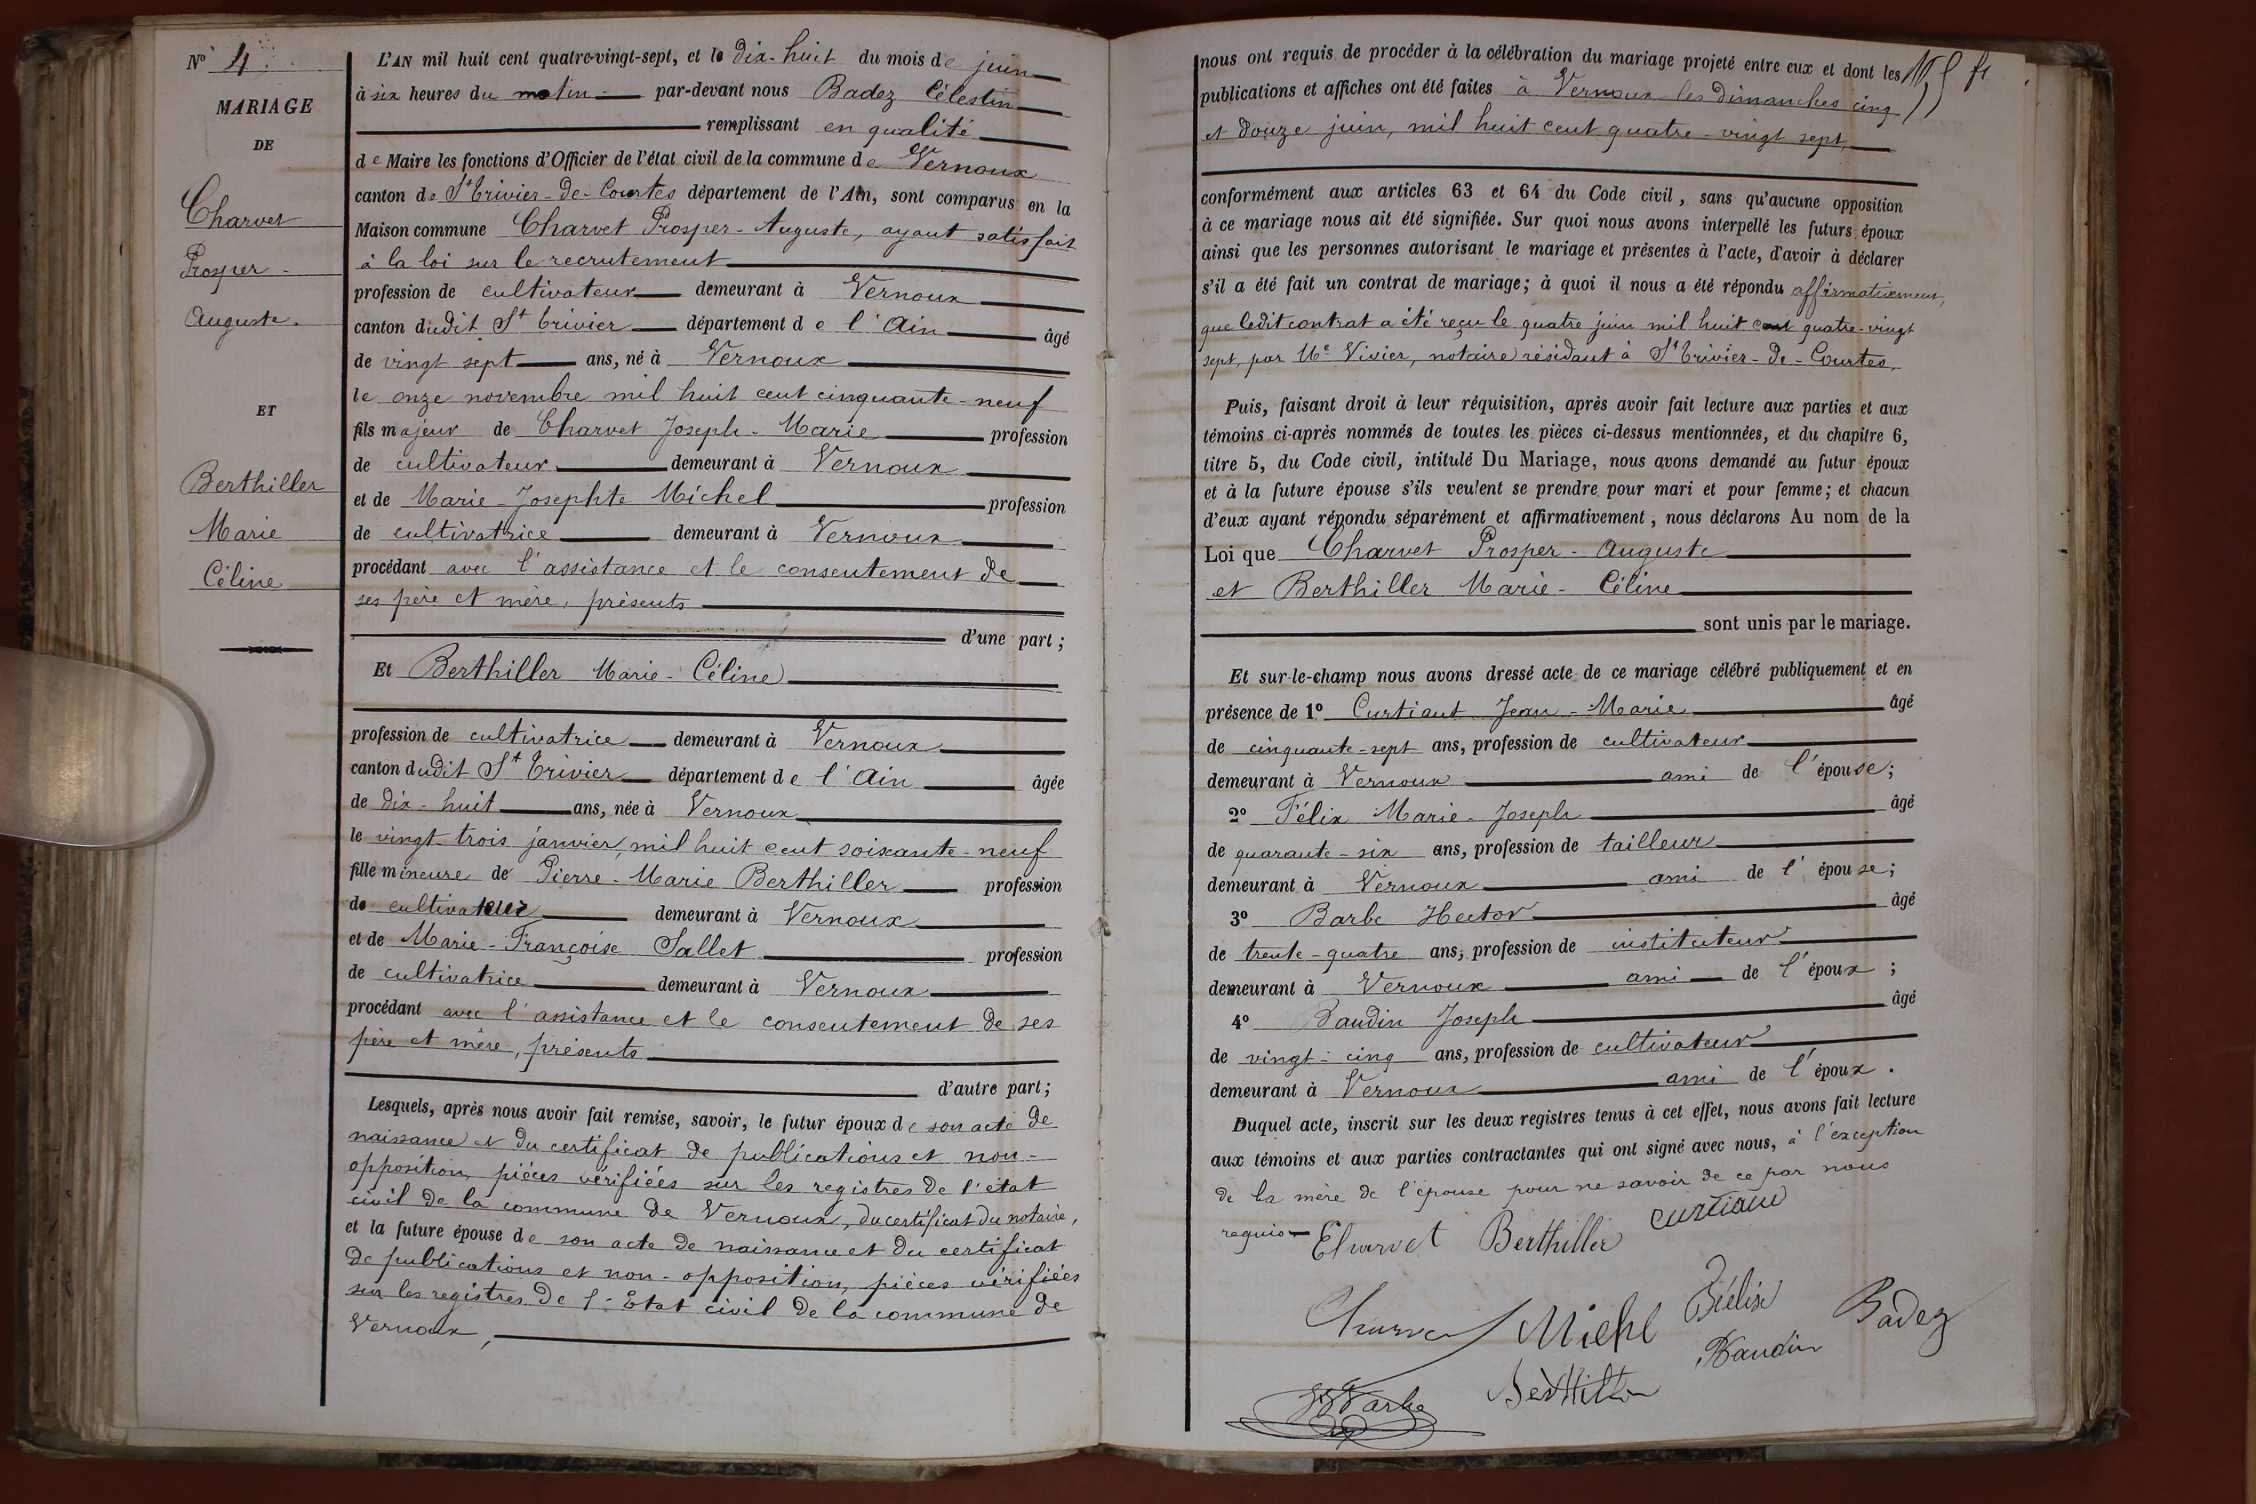 N° 4
MARIAGE
DE
Charvet
Prosper
Auguste.
ET
Berthiller
Marie
Céline
L'AN mil huit cent quatre-vingt-sept, et le dix-huit du mois de juin
à six heures du matin par-devant nous Badez Célestin
remplissant en qualité
de Maire les fonctions d'Officier de l'état civil de la commune de Vernoux
canton de St Trivier-de-Courtes département de l'Ain, sont comparus en la
Maison commune Charvet Prosper-Auguste, ayant satisfait
à la loi sur le recrutement
profession de cultivateur demeurant à Vernoux
canton dudit St Trivier département de l'Ain âgé
de vingt sept ans, né à Vernoux
le onze novembre mil huit cent cinquante-neuf
fils majeur de Charvet Joseph-Marie profession
de cultivateur demeurant à Vernoux
et de Marie-Josephte Michel profession
de cultivatrice demeurant à Vernoux
procédant avec l'assistance et le consentement de
ses père et mère, présents
d'une part;
Et Berthiller Marie-Céline
profession de cultivatrice demeurant à Vernoux
canton dudit St Trivier département de l'Ain âgée
de dix-huit ans, née à Vernoux
le vingt-trois janvier, mil huit cent soixante-neuf
fille mineure de Pierre-Marie Berthiller profession
de cultivateur demeurant à Vernoux
et de Marie-Françoise Sallet profession
de cultivatrice demeurant à Vernoux
procédant avec l'assistance et le consentement de ses
père et mère, présents
d'autre part;
Lesquels, après nous avoir fait remise, savoir, le futur époux de son acte de
naissance et du certificat de publications et non-
opposition, pièces vérifiées sur les registres de l'état
civil de la commune de Vernoux, du certificat du notaire,
et la future épouse de son acte de naissance et du certificat
de publications et non-opposition, pièces vérifiées
sur les registres de l'Etat civil de la commune de
Vernoux,
nous ont requis de procéder à la célébration du mariage projeté entre eux et dont les
publications et affiches ont été faites à Vernoux les dimanches cinq
et douze juin, mil huit cent quatre-vingt sept
conformément aux articles 63 et 64 du Code civil, sans qu'aucune opposition
à ce mariage nous ait été signifiée. Sur quoi nous avons interpellé les futurs époux
ainsi que les personnes autorisant le mariage et présentes à l'acte, d'avoir à déclarer
s'il a été fait un contrat de mariage; à quoi il nous a été répondu affirmativement,
que ledit contrat a été reçu le quatre juin mil huit cent quatre-vingt
sept, par Me Vivier, notaire résidant à St Trivier-de-Courtes,
Puis, faisant droit à leur réquisition, après avoir fait lecture aux parties et aux
témoins ci-après nommés de toutes les pièces ci-dessus mentionnées, et du chapitre 6,
titre 5, du Code civil, intitulé Du Mariage, nous avons demandé au futur époux
et à la future épouse s'ils veulent se prendre pour mari et pour femme; et chacun
d'eux ayant répondu séparément et affirmativement, nous déclarons Au nom de la
Loi que Charvet Prosper-Auguste
et Berthiller Marie-Céline
sont unis par le mariage.
Et sur-le-champ nous avons dressé acte de ce mariage célébré publiquement et en
présence de 1° Curtiaut Jean-Marie âgé
de cinquante-sept ans, profession de cultivateur
demeurant à Vernoux ami de l'épouse;
2° Félix Marie-Joseph âgé
de quarante-six ans, profession de tailleur
demeurant à Vernoux ami de l'épouse;
3° Barbe Hector âgé
de trente-quatre ans, profession de instituteur
demeurant à Vernoux ami de l'époux;
4° Baudin Joseph âgé
de vingt-cinq ans, profession de cultivateur
demeurant à Vernoux ami de l'époux.
Duquel acte, inscrit sur les deux registres tenus à cet effet, nous avons fait lecture
aux témoins et aux parties contractantes qui ont signé avec nous, à l'exception
de la mère de l'épouse pour ne savoir de ce par nous
requis
Charvet Berthiller Curtiau
Charvet Michl Félix Badez
Baudin
Barbe Berthiller